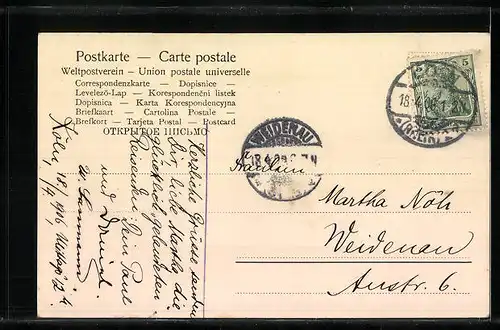 Postkarte — Carte postale
Weltpostverein – Union postale universelle
Correspondenzkarte – Dopisnice –
Levelező-Lap – Korespondenční listek
Dopisnica – Karta Korespondencyjna
Briefkaart – Cartolina Postale –
Brefkort – Tarjeta Postal – Postcard
ОТКРЫТОЕ ПИСЬМО
5
WEIDENAU
Fräulein
Martha Nöh
Weidenau
Austr. 6.
Herzliche Grüsse senden
Dir, liebe Martha die
glücklich gelandeten
Reisenden. Dein Paul
und
Köln, 18/4 1906